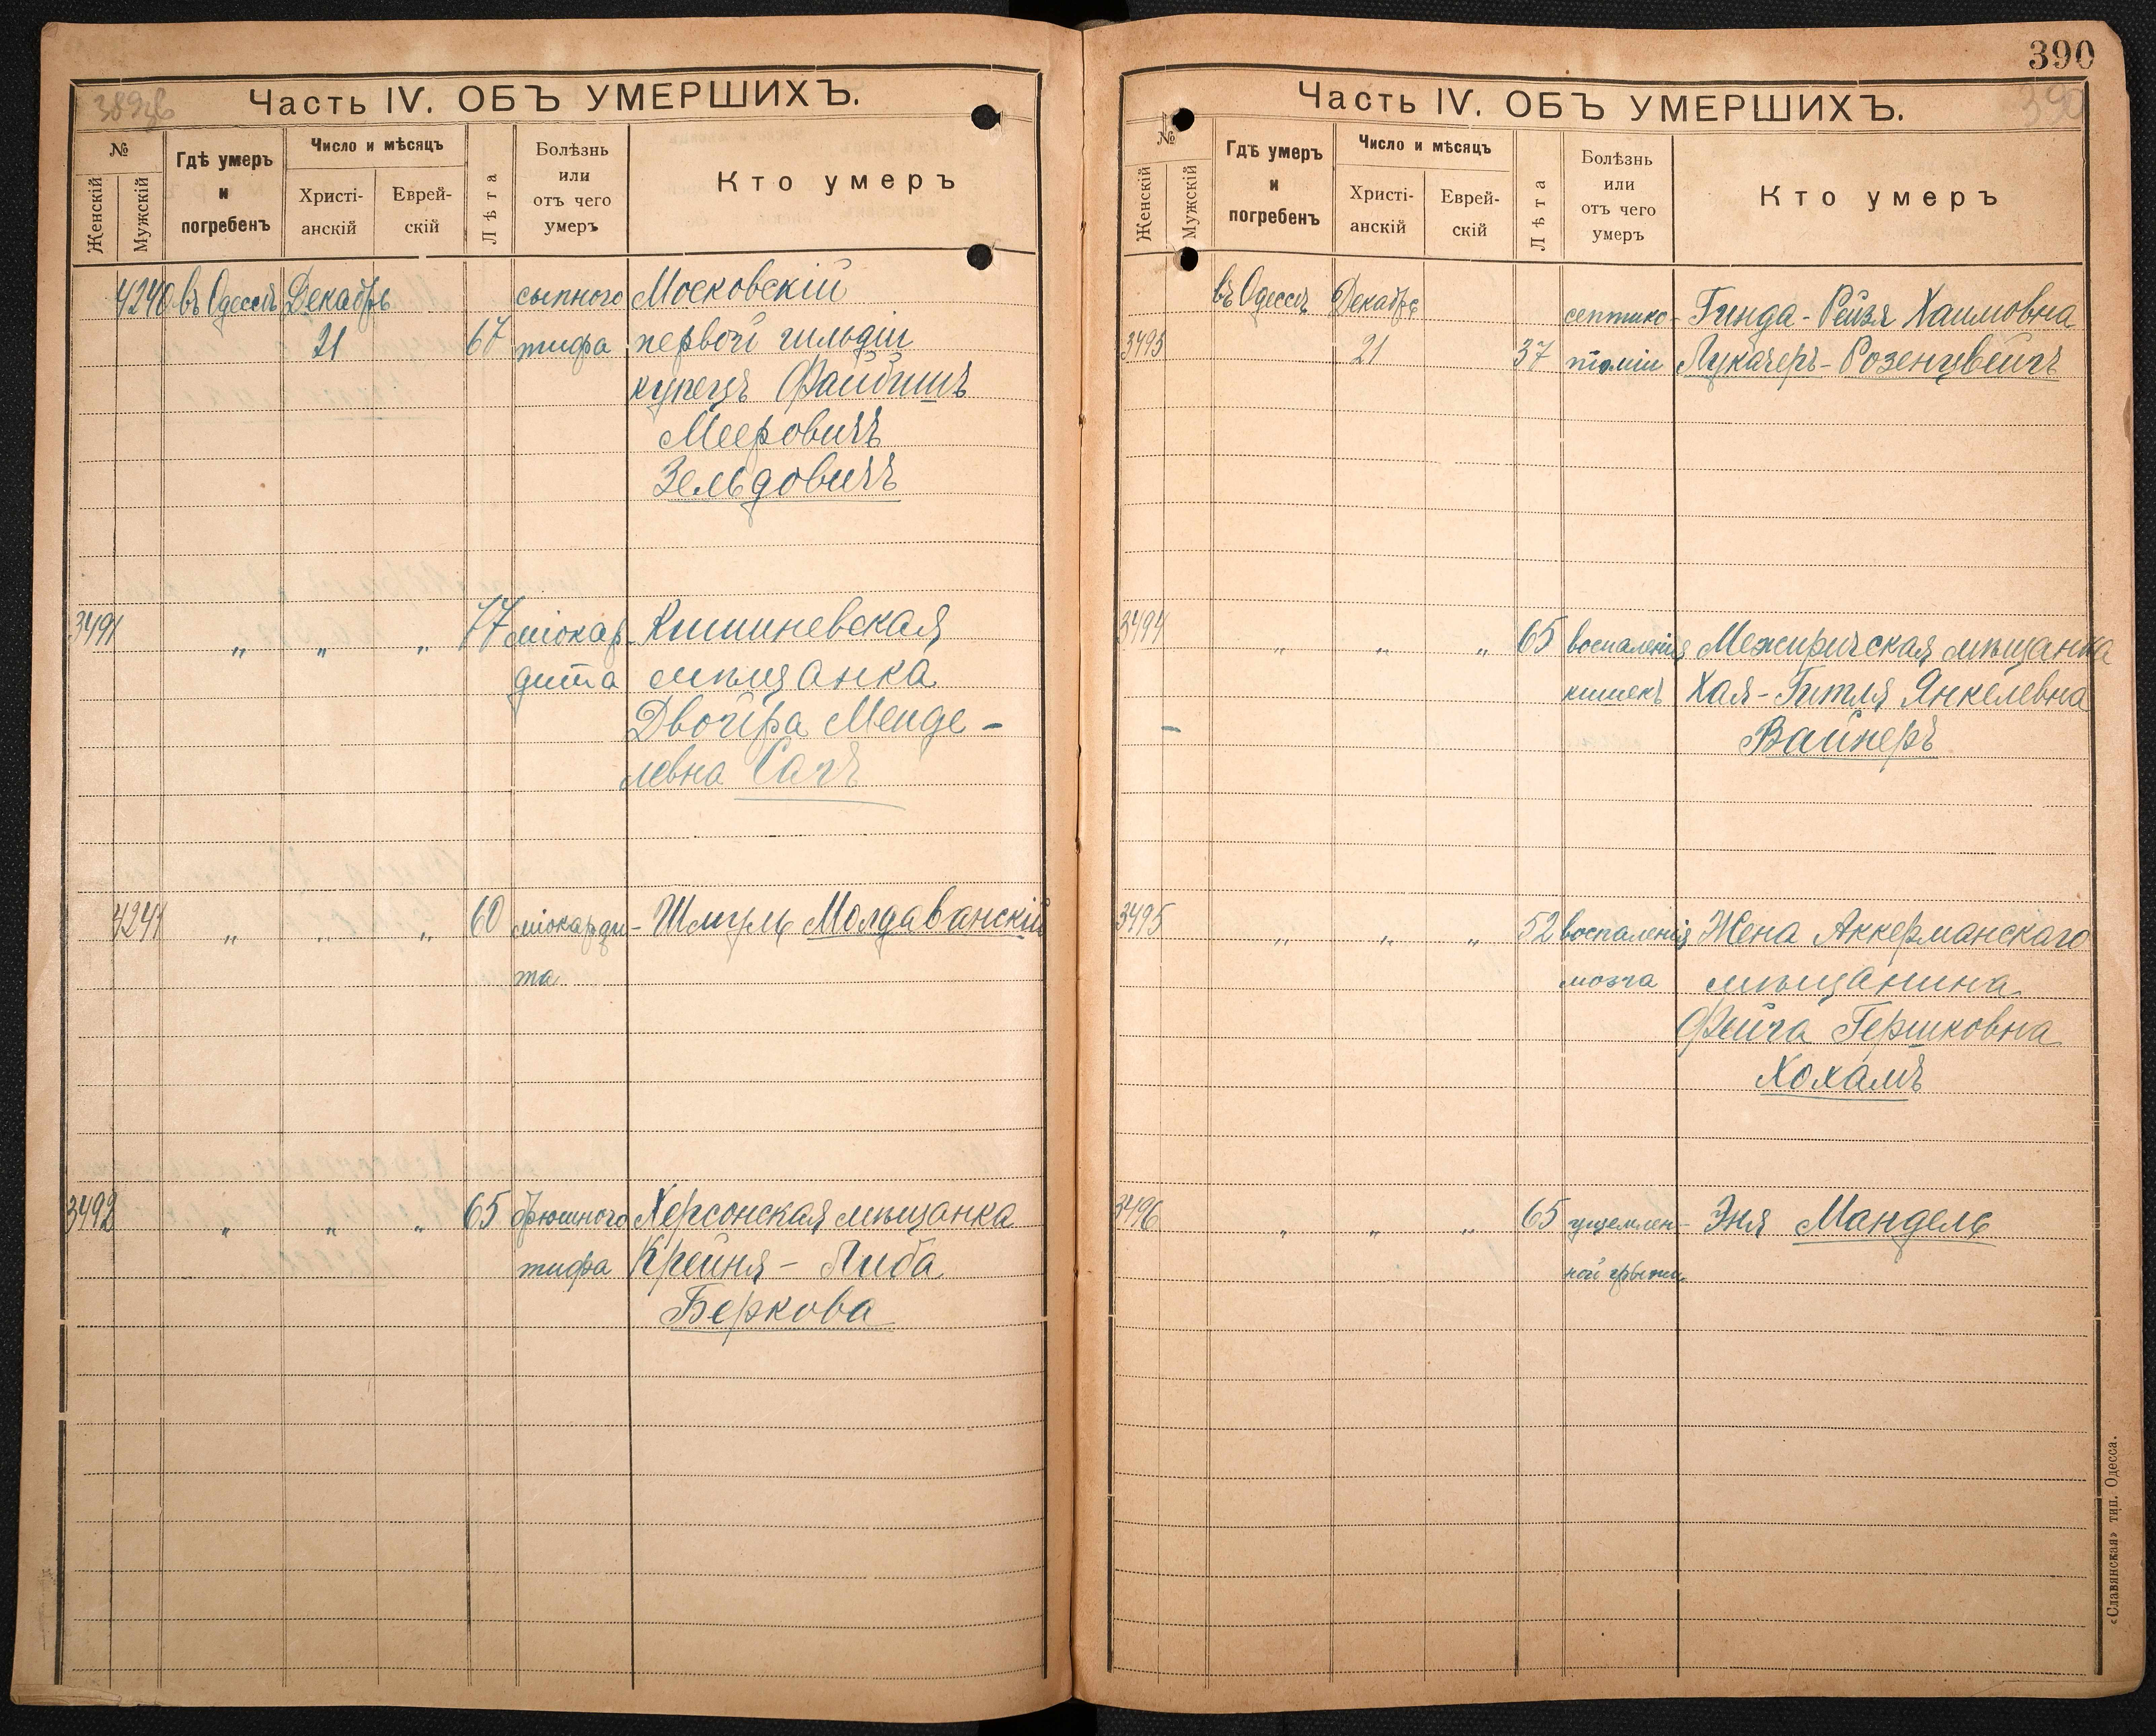 389об
Часть IV. ОБЪ УМЕРШИХЪ.
№
Женскій
Мужскій
Гдѣ умеръ и погребенъ
Число и мѣсяцъ
Христі-
анскій
Еврей-
скій
Лѣта
Болѣзнь
или
отъ чего
умеръ
Кто умеръ
4240 въ Одессѣ Декабрь сыпного Московскій
21 67 тифа первой гильдіи
купецъ Файбишъ
Мееровичъ
Зельдовичъ
3491 " " " 77 міокар- Кишиневская
дита мѣщанка
Двойра Менде-
левна Сагъ
4241 " " " 60 міокарди- Шмуль Молдаванскій
та
3492 " " " 65 брюшного Херсонская мѣщанка
тифа Крейня-Либа
Беркова
390
390
Часть IV. ОБЪ УМЕРШИХЪ.
№
Женскій
Мужскій
Гдѣ умеръ и погребенъ
Число и мѣсяцъ
Христі-
анскій
Еврей-
скій
Лѣта
Болѣзнь
или
отъ чего
умеръ
Кто умеръ
въ Одессѣ Декабрь септико- Гинда-Рейзя Хаимовна
3493 21 37 піэміи Лукачеръ-Розенцвейгъ
3494 " " " 65 воспаленія Межиричская мѣщанка
кишекъ Хая-Гитля Янкелевна
Вайнеръ
3495 " " " 52 воспаленія Жена Аккерманскаго
мозга мѣщанина
Фейга Гершковна
Хохамъ
3496 " " " 65 ущемлен- Эня Мандель
ной грыжи
«Славянская» тип. Одесса.